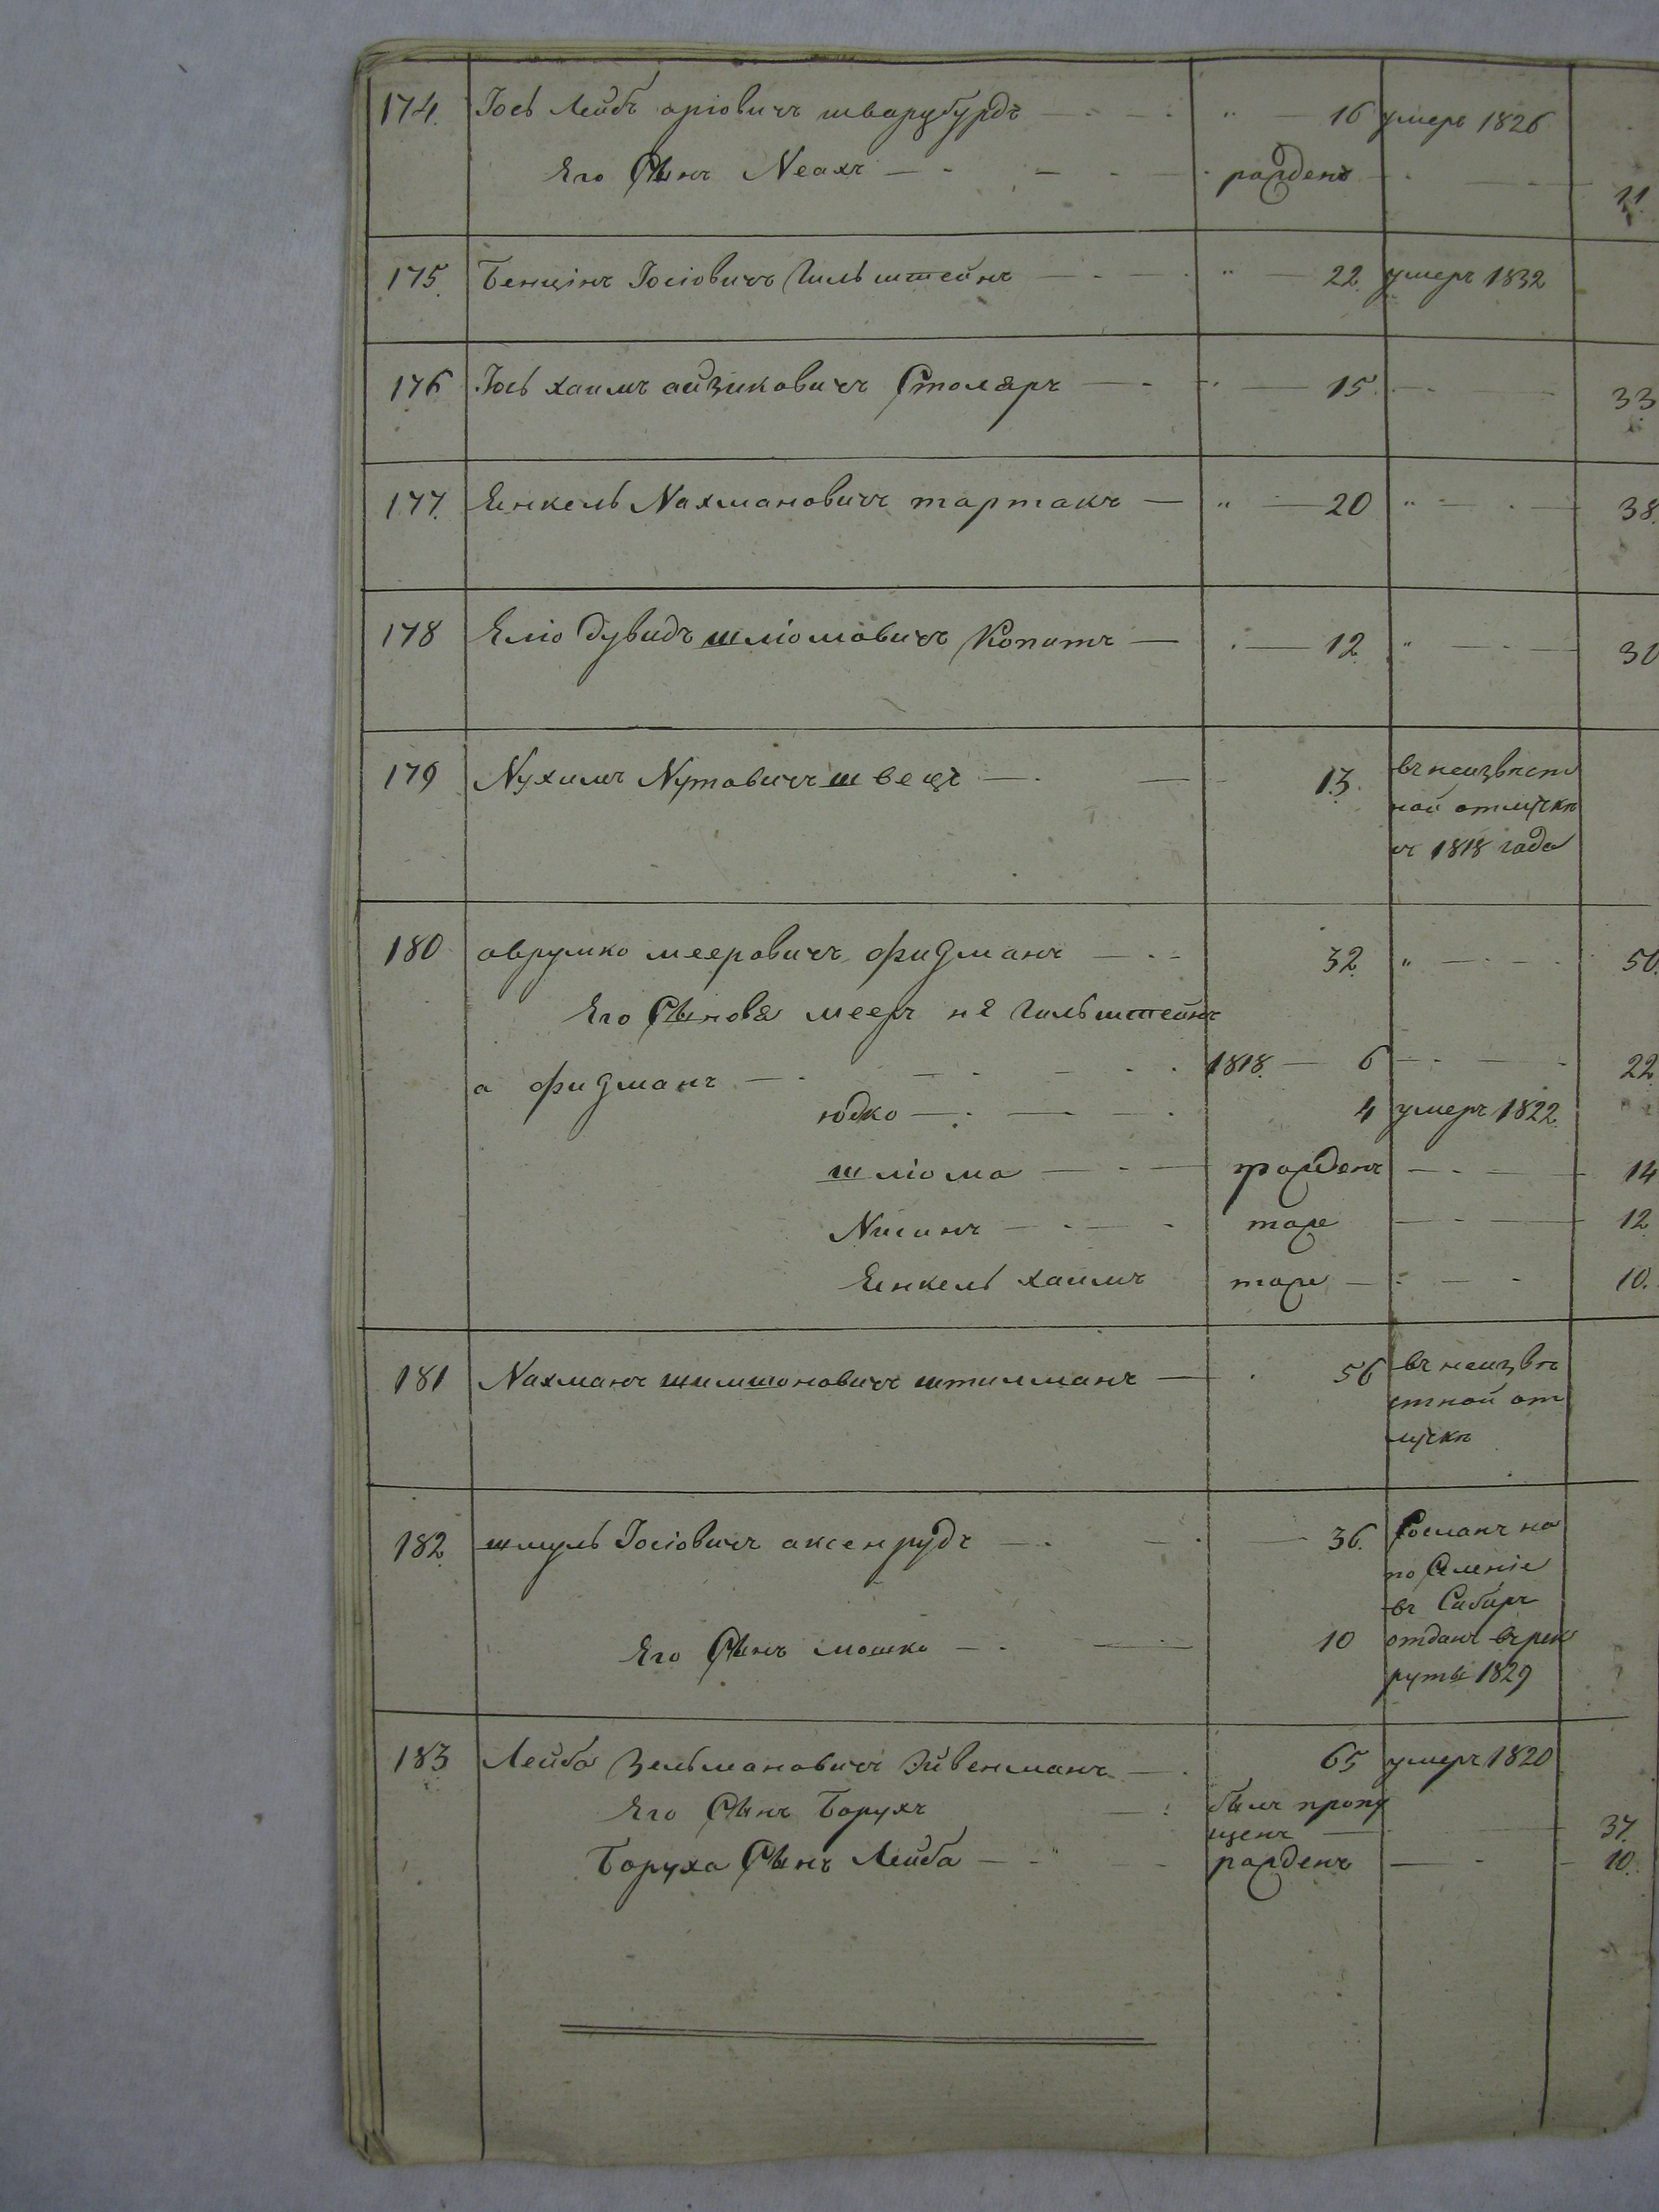 174. Іось Лейбъ оріовичъ шварцбурдъ — " — 16 умеръ 1826
Его Сынъ Неахъ — рожденъ — 21
175. Бенціинъ Іосіовичъ Гильштейнъ — " — 22. умеръ 1832
176 Іось хаимъ айзиковичъ Столяръ — " — 15. — 33
177. Енкель Нахмановичъ тартакъ — " — 20 " — 38.
178 Еліо дувидъ шліомовичъ Копитъ — 12. " — 30
179 Нухимъ Нутовичъ швецъ — 13. въ неизвѣст
ной отлучкѣ
съ 1818 года
180 аврумко мееровичъ фидманъ — 32. " — 50.
Его Сыновя мееръ нѣ Гильштейнъ
а фидманъ — 1818. — 6 — 22.
юдко — 4 умеръ 1822.
шліома — рожденъ — 14
Нисинъ — тоже — 12
Енкель хаимъ тоже — 10.
181 Нахманъ шимшоновичъ штилманъ — 56 въ неизвѣ
стной от
лучкѣ
182. шмуль Іосіовичъ аксенрудъ — 36. Сосланъ на
по Селеніе
въ Сибирь
Его Сынъ мошко — 10 отданъ въ рек
руты 1829
183 Лейба Зельмановичъ Эйвенманъ — 65 умеръ 1820
Его Сынъ Борухъ — былъ пропу
щенъ — 37.
Боруха Сынъ Лейба — рожденъ — 10.